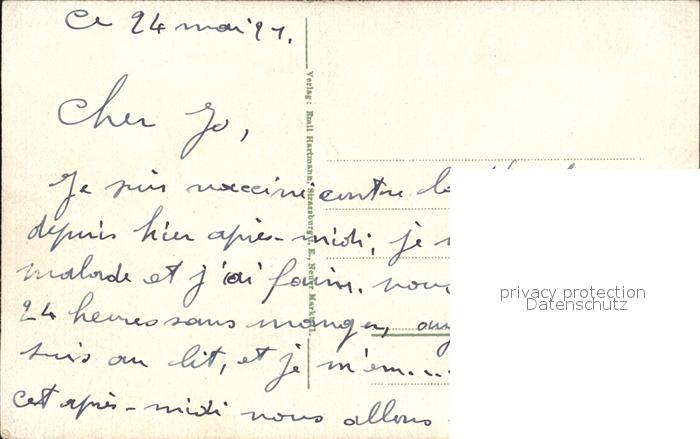 Ce 24 mai 21.
Cher Jo,
Je suis vacciné contre la
depuis hier après-midi, je
malade et j'ai faim. nous
24 heures sans manger,
suis au lit, et je m'em...
cet après-midi nous allons
Verlag: Emil Hartmann, Strassburg i. E., Neuer Markt 1.
privacy protection
Datenschutz